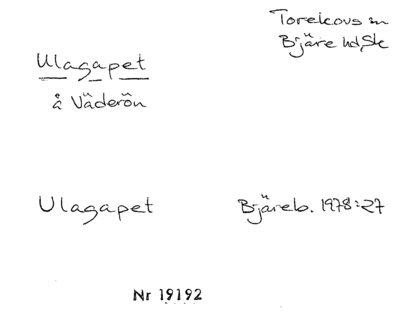 Torekovs sn
Bjäre hd, Sk
Ulagapet
å Väderön
Ulagapet Bjäreb. 1978:27
Nr 19192